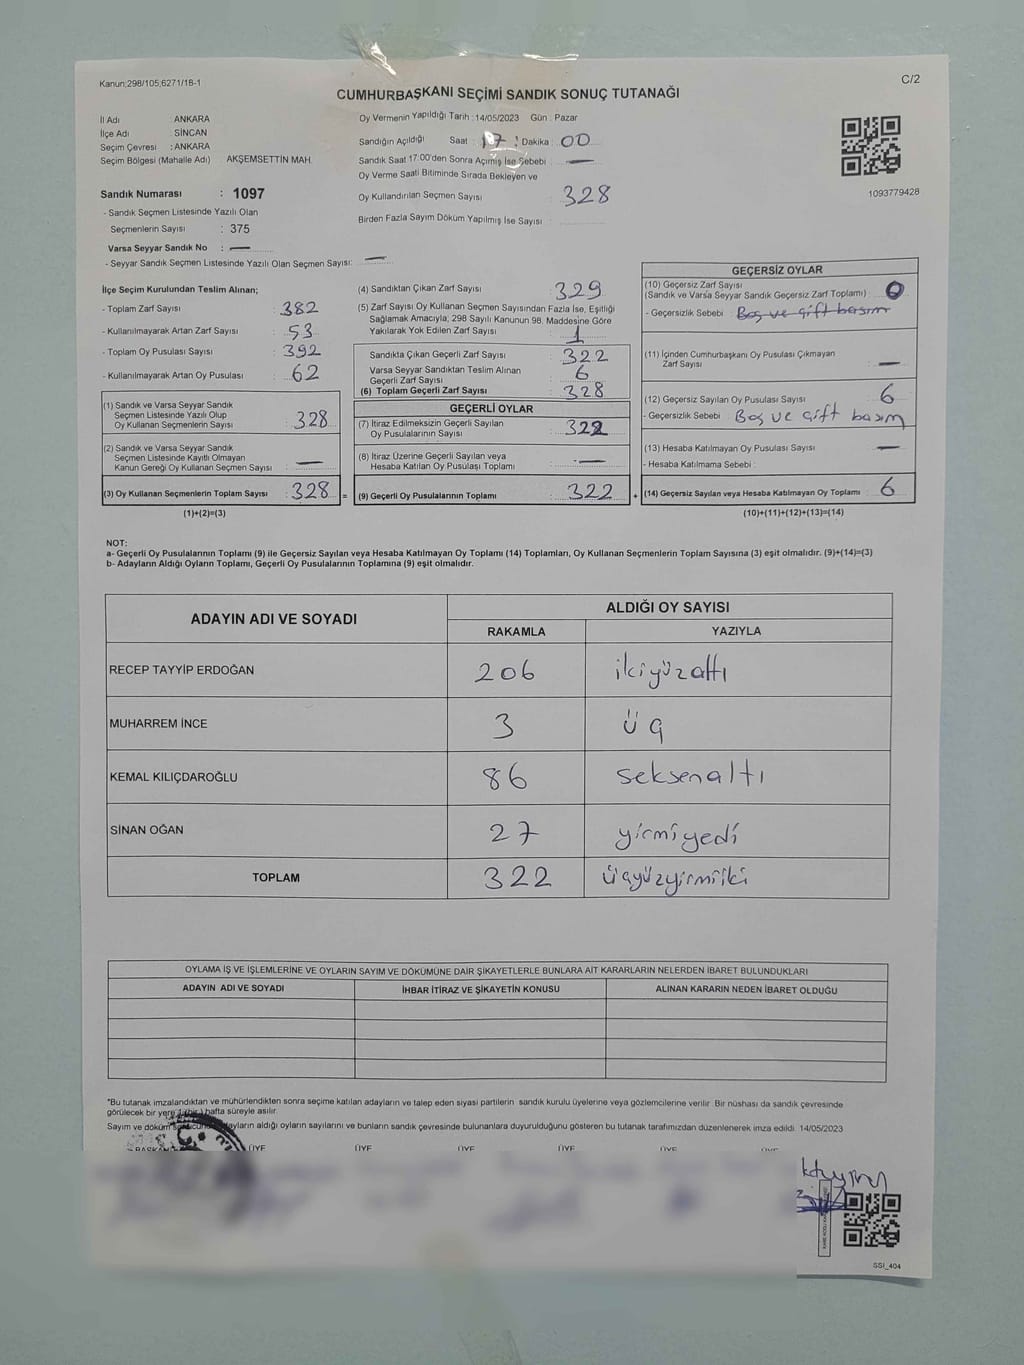 Kanun;298/105,6271/1B-1
C/2
CUMHURBAŞKANI SEÇİMİ SANDIK SONUÇ TUTANAĞI
İl Adı : ANKARA
İlçe Adı : SİNCAN
Seçim Çevresi : ANKARA
Seçim Bölgesi (Mahalle Adı) AKŞEMSETTİN MAH.
Sandık Numarası : 1097
- Sandık Seçmen Listesinde Yazılı Olan
Seçmenlerin Sayısı : 375
Varsa Seyyar Sandık No : —
- Seyyar Sandık Seçmen Listesinde Yazılı Olan Seçmen Sayısı: —
Oy Vermenin Yapıldığı Tarih : 14/05/2023 Gün : Pazar
Sandığın Açıldığı Saat : 17 : Dakika : 00
Sandık Saat 17:00'den Sonra Açılmış İse Sebebi : —
Oy Verme Saati Bitiminde Sırada Bekleyen ve
Oy Kullandırılan Seçmen Sayısı 328
Birden Fazla Sayım Döküm Yapılmış İse Sayısı :
1093779428
İlçe Seçim Kurulundan Teslim Alınan;
- Toplam Zarf Sayısı : 382
- Kullanılmayarak Artan Zarf Sayısı : 53
- Toplam Oy Pusulası Sayısı : 392
- Kullanılmayarak Artan Oy Pusulası : 62
(1) Sandık ve Varsa Seyyar Sandık
Seçmen Listesinde Yazılı Olup
Oy Kullanan Seçmenlerin Sayısı : 328
(2) Sandık ve Varsa Seyyar Sandık
Seçmen Listesinde Kayıtlı Olmayan
Kanun Gereği Oy Kullanan Seçmen Sayısı : —
(3) Oy Kullanan Seçmenlerin Toplam Sayısı : 328 =
(1)+(2)=(3)
(4) Sandıktan Çıkan Zarf Sayısı : 329
(5) Zarf Sayısı Oy Kullanan Seçmen Sayısından Fazla İse, Eşitliği
Sağlamak Amacıyla, 298 Sayılı Kanunun 98. Maddesine Göre
Yakılarak Yok Edilen Zarf Sayısı : 1
Sandıkta Çıkan Geçerli Zarf Sayısı : 322
Varsa Seyyar Sandıktan Teslim Alınan
Geçerli Zarf Sayısı : 6
(6) Toplam Geçerli Zarf Sayısı : 328
GEÇERLİ OYLAR
(7) İtiraz Edilmeksizin Geçerli Sayılan
Oy Pusulalarının Sayısı : 322
(8) İtiraz Üzerine Geçerli Sayılan veya
Hesaba Katılan Oy Pusulası Toplamı : —
(9) Geçerli Oy Pusulalarının Toplamı : 322 +
GEÇERSİZ OYLAR
(10) Geçersiz Zarf Sayısı
(Sandık ve Varsa Seyyar Sandık Geçersiz Zarf Toplamı) : 0
- Geçersizlik Sebebi : Boş ve çift basım
(11) İçinden Cumhurbaşkanı Oy Pusulası Çıkmayan
Zarf Sayısı : —
(12) Geçersiz Sayılan Oy Pusulası Sayısı : 6
- Geçersizlik Sebebi : Boş ve çift basım
(13) Hesaba Katılmayan Oy Pusulası Sayısı : —
- Hesaba Katılmama Sebebi :
(14) Geçersiz Sayılan veya Hesaba Katılmayan Oy Toplamı : 6
(10)+(11)+(12)+(13)=(14)
NOT:
a- Geçerli Oy Pusulalarının Toplamı (9) ile Geçersiz Sayılan veya Hesaba Katılmayan Oy Toplamı (14) Toplamları, Oy Kullanan Seçmenlerin Toplam Sayısına (3) eşit olmalıdır. (9)+(14)=(3)
b- Adayların Aldığı Oyların Toplamı, Geçerli Oy Pusulalarının Toplamına (9) eşit olmalıdır.
ADAYIN ADI VE SOYADI
ALDIĞI OY SAYISI
RAKAMLA YAZIYLA
RECEP TAYYİP ERDOĞAN 206 ikiyüzaltı
MUHARREM İNCE 3 üç
KEMAL KILIÇDAROĞLU 86 seksenaltı
SİNAN OĞAN 27 yirmiyedi
TOPLAM 322 üçyüzyirmiiki
OYLAMA İŞ VE İŞLEMLERİNE VE OYLARIN SAYIM VE DÖKÜMÜNE DAİR ŞİKAYETLERLE BUNLARA AİT KARARLARIN NELERDEN İBARET BULUNDUKLARI
ADAYIN ADI VE SOYADI İHBAR İTİRAZ VE ŞİKAYETİN KONUSU ALINAN KARARIN NEDEN İBARET OLDUĞU
*Bu tutanak imzalandıktan ve mühürlendikten sonra seçime katılan adayların ve talep eden siyasi partilerin sandık kurulu üyelerine veya gözlemcilerine verilir. Bir nüshası da sandık çevresinde
görülecek bir yere 1 (bir) hafta süreyle asılır.
Sayım ve döküm adayların aldığı oyların sayılarını ve bunların sandık çevresinde bulunanlara duyurulduğunu gösteren bu tutanak tarafımızdan düzenlenerek imza edildi. 14/05/2023
BAŞKAN ÜYE ÜYE ÜYE ÜYE ÜYE ÜYE
SSI_404